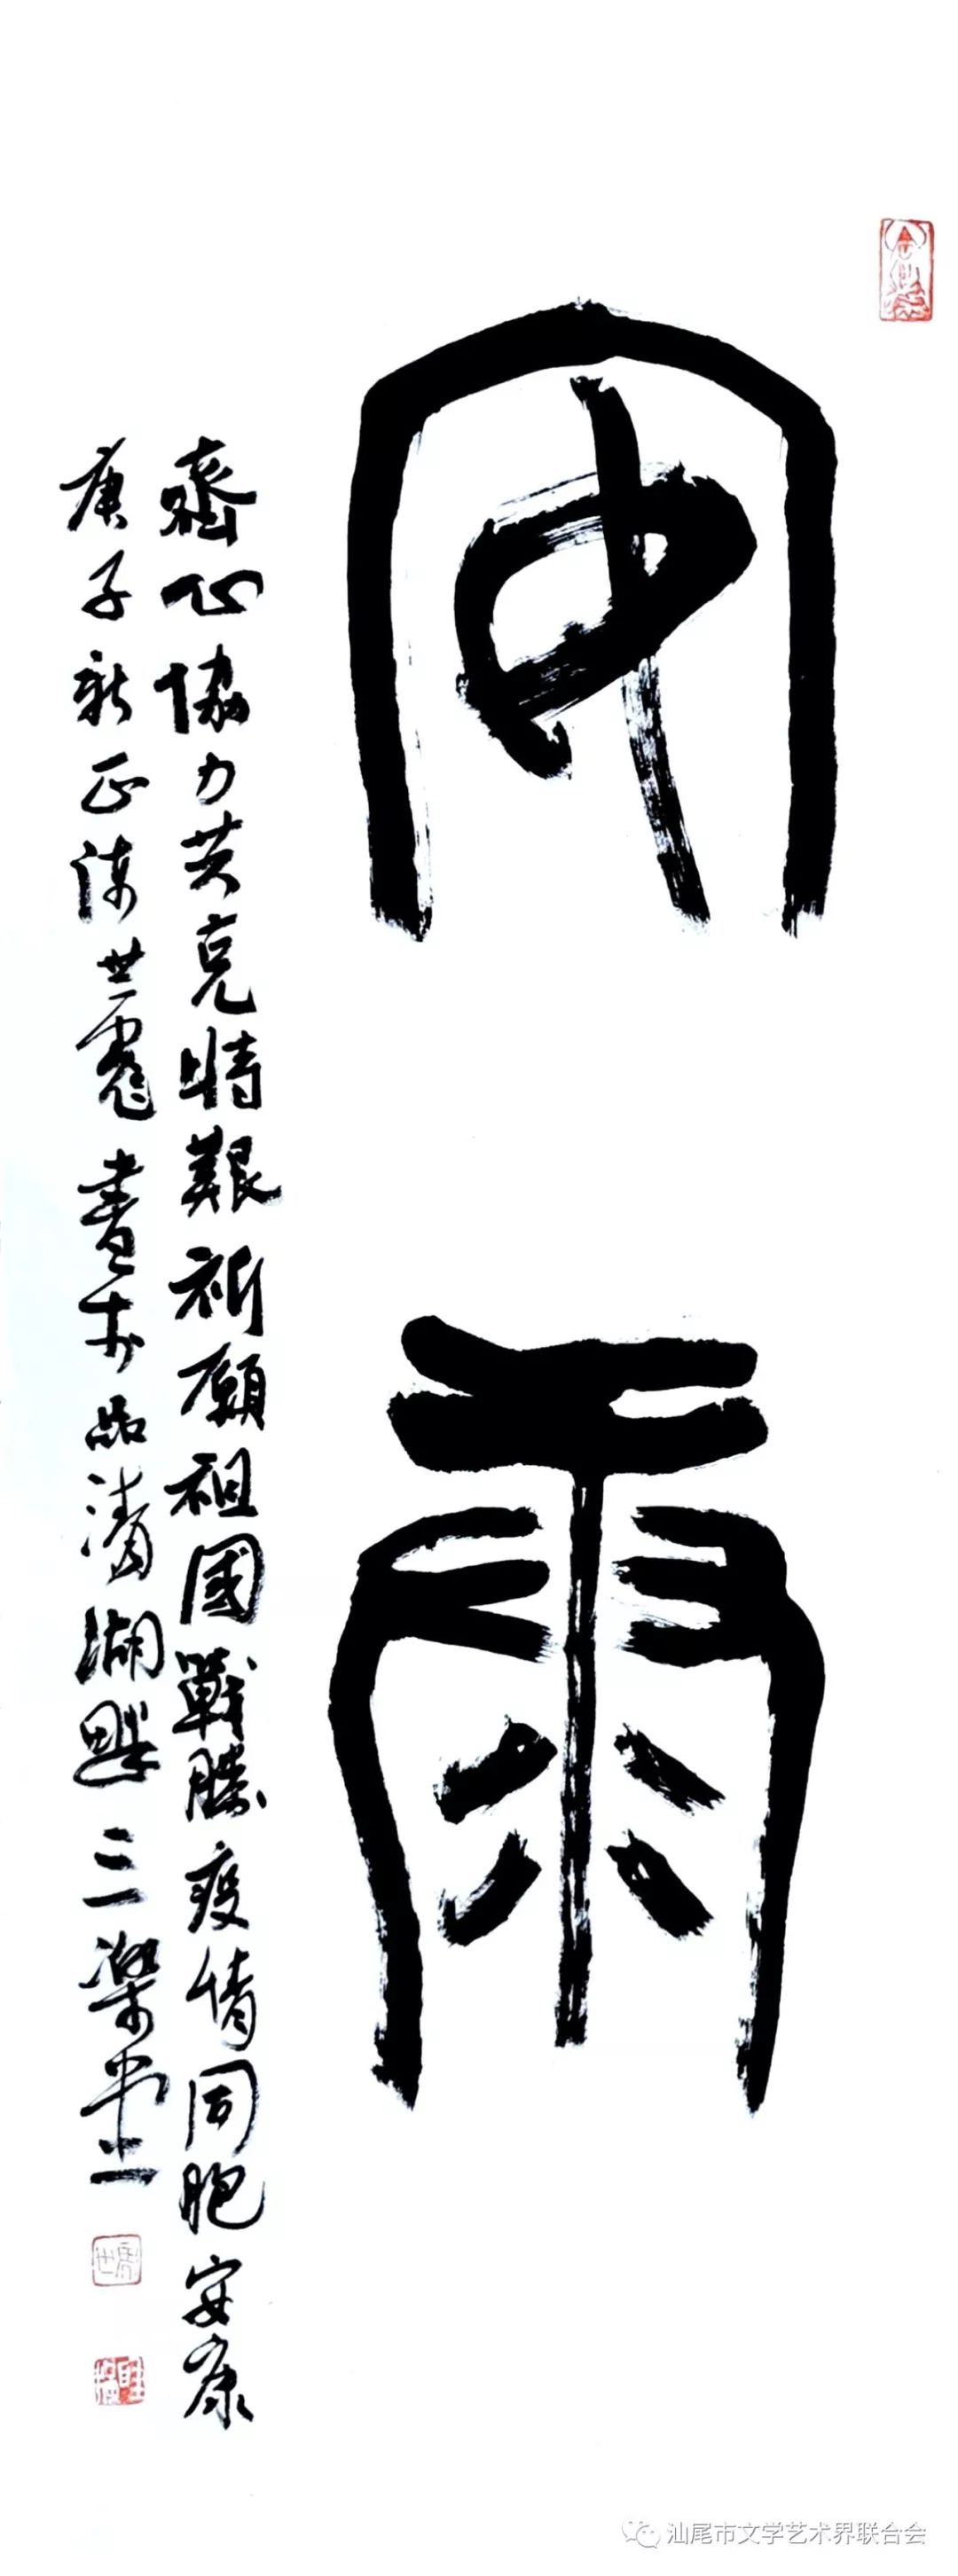 安康
齊心協力共克時艱祈願祖國戰勝疫情同胞安康
庚子新正陳世書於品清湖畔三樂堂
汕尾市文学艺术界联合会